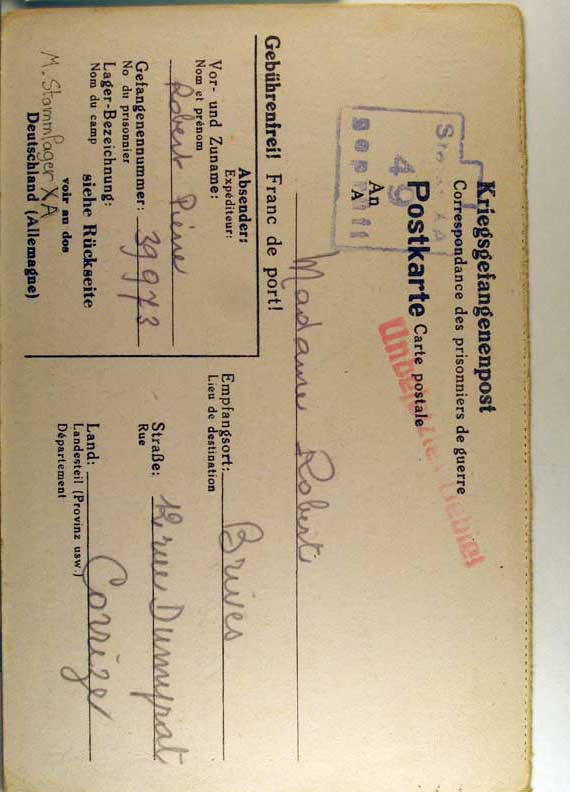 Kriegsgefangenenpost
Correspondance des prisonniers de guerre
Postkarte Carte postale
An
A
49
Geprüft
Unbesetztes Gebiet
Madame Robert
Gebührenfrei! Franc de port!
Absender:
Expéditeur:
Vor- und Zuname:
Nom et prénom
Robert Pierre
Gefangenennummer: 39973
No du prisonnier
Lager-Bezeichnung: siehe Rückseite
Nom du camp voir au dos
M. Stammlager XA
Deutschland (Allemagne)
Empfangsort: Brives
Lieu de destination
Straße: 12 rue Dumyrat
Rue
Land: Corrèze
Landesteil (Provinz usw.)
Département